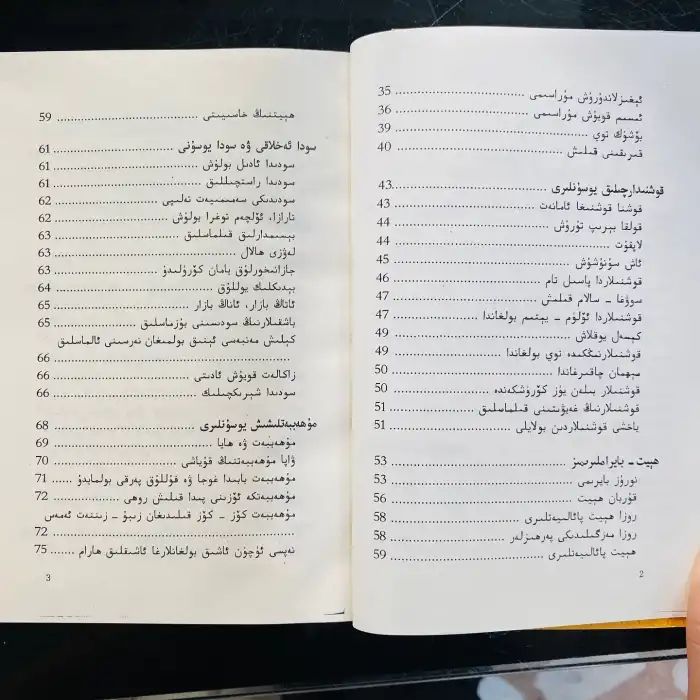 ئېغىزلاندۇرۇش مۇراسىمى ........................ 35
ئىسىم قويۇش مۇراسىمى ........................ 36
بۆشۈك توي ........................ 39
قىرىقىنى قىلىش ........................ 40
قوشنىدارچىلىق يوسۇنلىرى ........................ 43
قوشنا قوشنىغا ئامانەت ........................ 43
قولقا بېرىپ تۇرۇش ........................ 44
لاپقۇت ........................ 44
ئاش سۇنۇشۇش ........................ 45
قوشنىلاردا پاسىل تام ........................ 46
سوۋغا - سالام قىلىش ........................ 47
قوشنىلاردا ئۆلۈم - يېتىم بولغاندا ........................ 47
كېسەل يوقلاش ........................ 49
قوشنىلارنىڭكىدە توي بولغاندا ........................ 49
مېھمان چاقىرغاندا ........................ 50
قوشنىلار بىلەن يۈز كۆرۈشكەندە ........................ 50
قوشنىلارنىڭ غەيۋىتىنى قىلماسلىق ........................ 51
ياخشى قوشنىلاردىن بولايلى ........................ 51
ھېيت - بايراملىرىمىز ........................ 53
نورۇز بايرىمى ........................ 53
قۇربان ھېيت ........................ 56
روزا ھېيت پائالىيەتلىرى ........................ 58
روزا مەزگىلىدىكى پەرھىزلەر ........................ 58
ھېيت پائالىيەتلىرى ........................ 59
2
ھېيتنىڭ خاسىيىتى ........................ 59
سودا ئەخلاقى ۋە سودا يوسۇنى ........................ 61
سودىدا ئادىل بولۇش ........................ 61
سودىدا راستچىللىق ........................ 61
سودىدىكى سەمىمىيەت تەلىپى ........................ 62
تارازا، ئۆلچەم توغرا بولۇش ........................ 62
بېسىمدارلىق قىلماسلىق ........................ 63
لەۋزى ھالال ........................ 63
جازانىخورلۇق يامان كۆرۈلىدۇ ........................ 63
بېدىكلىك يوللۇق ........................ 64
ئاتاڭ بازار، ئاناڭ بازار ........................ 65
باشقىلارنىڭ سودىسىنى بۇزماسلىق ........................ 65
كېلىش مەنبەسى ئېنىق بولمىغان نەرسىنى ئالماسلىق
........................ 66
زاكالەت قويۇش ئادىتى ........................ 66
سودىدا شېرىكچىلىك ........................ 66
مۇھەببەتلىشىش يوسۇنلىرى ........................ 68
مۇھەببەت ۋە ھايا ........................ 69
ۋاپا مۇھەببەتنىڭ قۇياشى ........................ 70
مۇھەببەت بابىدا غوجا ۋە قۇللۇق پەرقى بولمايدۇ ........................ 71
مۇھەببەتكە ئۆزىنى پىدا قىلىش روھى ........................ 72
مۇھەببەت كۆز - كۆز قىلىدىغان زىبۇ - زىننەت ئەمەس
........................ 72
نەپسى ئۈچۈن ئاشىق بولغانلارغا ئاشىقلىق ھارام ....... 75
3